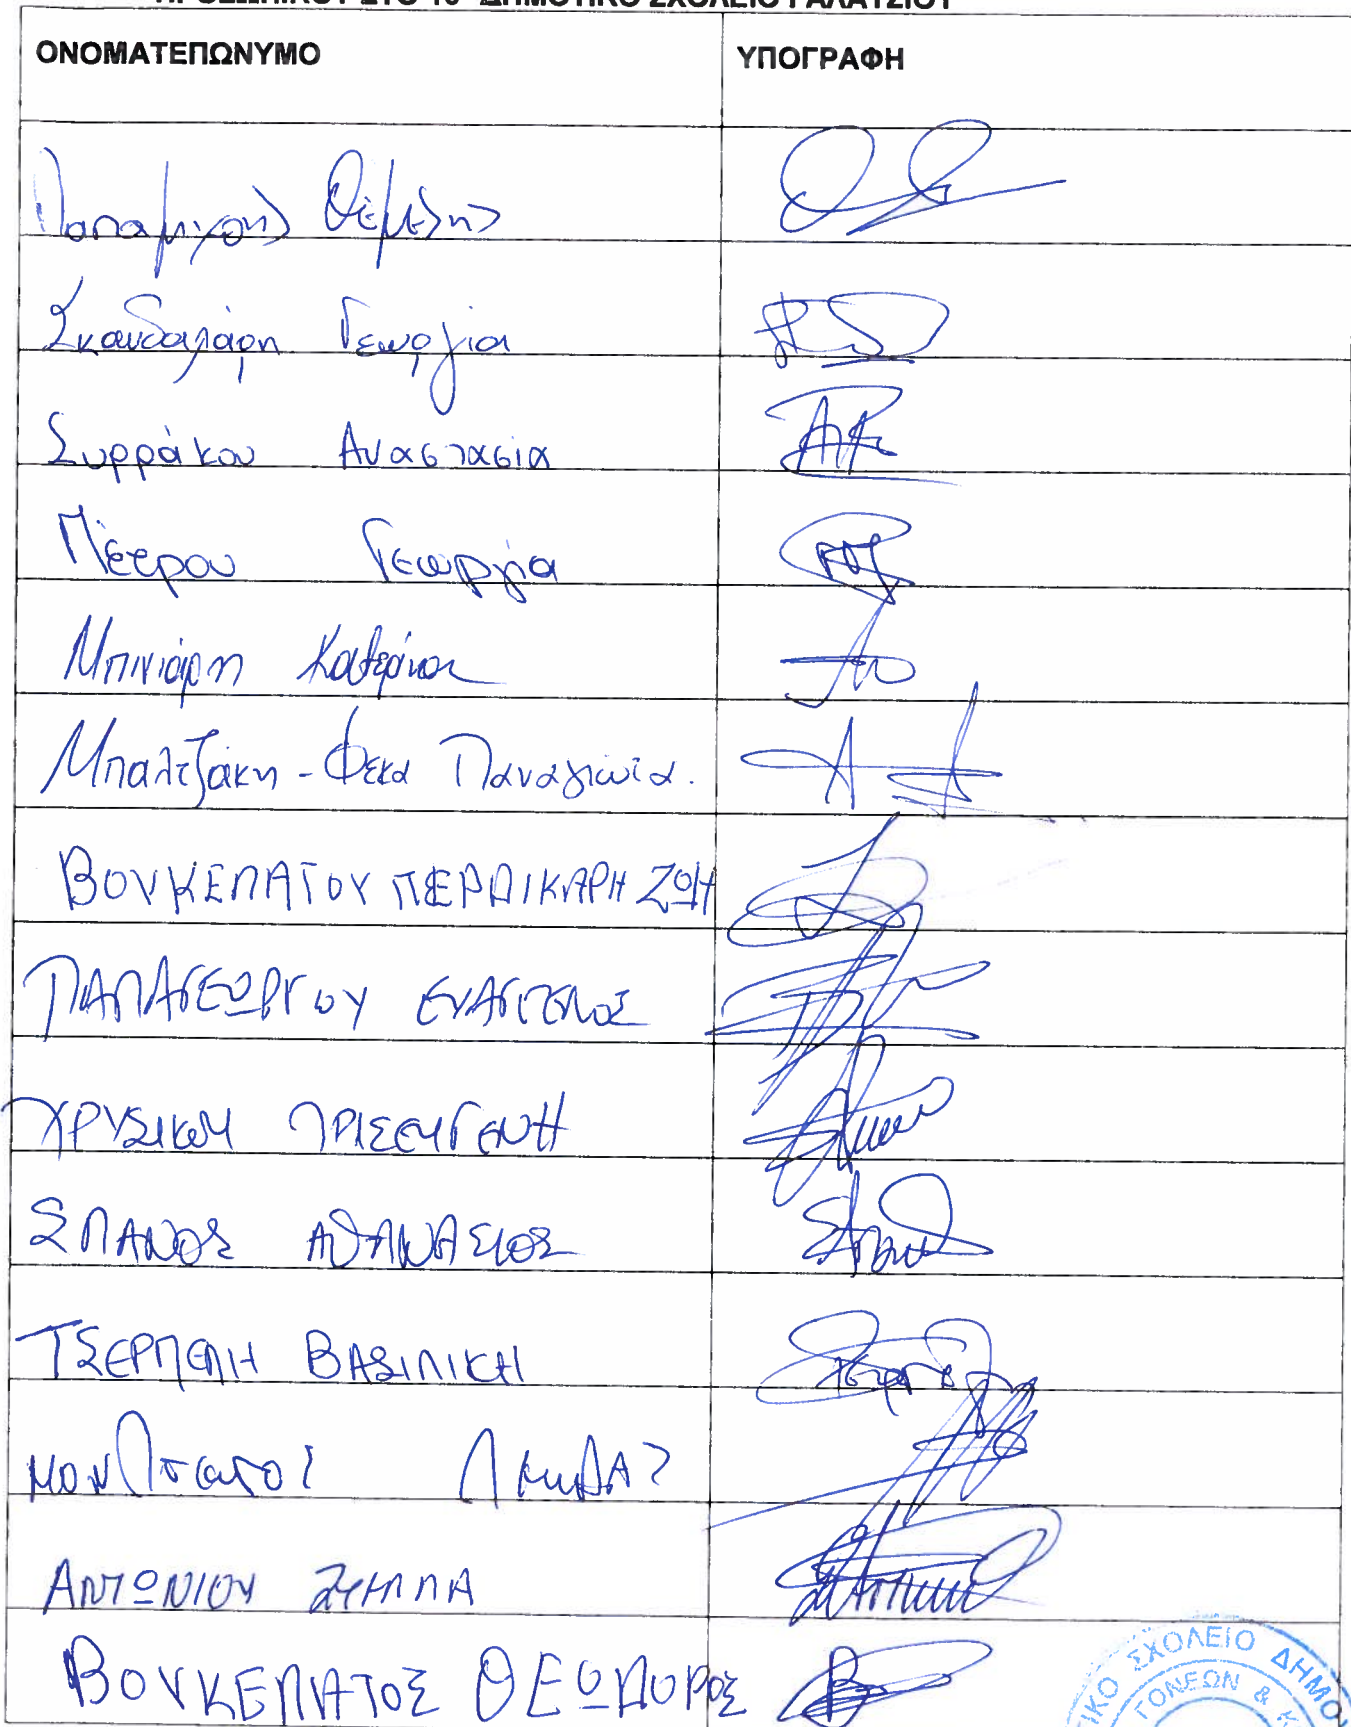 ΠΡΟΣΩΠΙΚΟΥ ΣΤΟ 10º ΔΗΜΟΤΙΚΟ ΣΧΟΛΕΙΟ ΓΑΛΑΤΣΙΟΥ
ΟΝΟΜΑΤΕΠΩΝΥΜΟ ΥΠΟΓΡΑΦΗ
Παπαμιχαήλ Θέμελης
Σκανδαλάρη Γεωργία
Συρράκου Αναστασία
Πέτρου Γεωργία
Μπινιάρη Κατερίνα
Μπαλτζάκη - Φέκα Παναγιώτα.
ΒΟΥΚΕΛΑΤΟΥ ΠΕΡΔΙΚΑΡΗ ΖΩΗ
ΠΑΠΑΓΕΩΡΓΙΟΥ ΕΥΑΓΓΕΛΟΣ
ΧΡΥΣΙΚΟΥ ΤΡΙΣΕΥΓΕΝΗ
ΣΠΑΝΟΣ ΑΘΑΝΑΣΙΟΣ
ΤΣΕΡΠΕΛΗ ΒΑΣΙΛΙΚΗ
ΑΝΤΩΝΙΟΥ
ΒΟΥΚΕΛΑΤΟΣ ΘΕΩΔΩΡΟΣ
ΣΧΟΛΕΙΟ
ΓΟΝΕΩΝ &